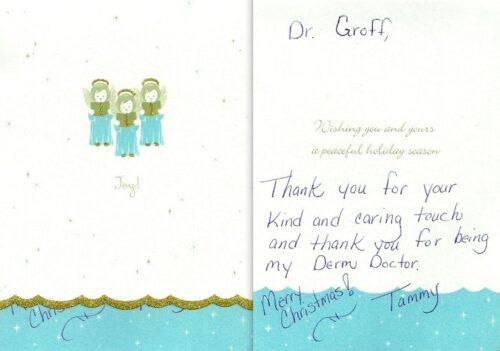 Joy!
Dr. Groff,
Wishing you and yours
a peaceful holiday season
Thank you for your
Kind and caring touch
and thank you for being
my Derm Doctor.
Merry
Christmas!
Tammy